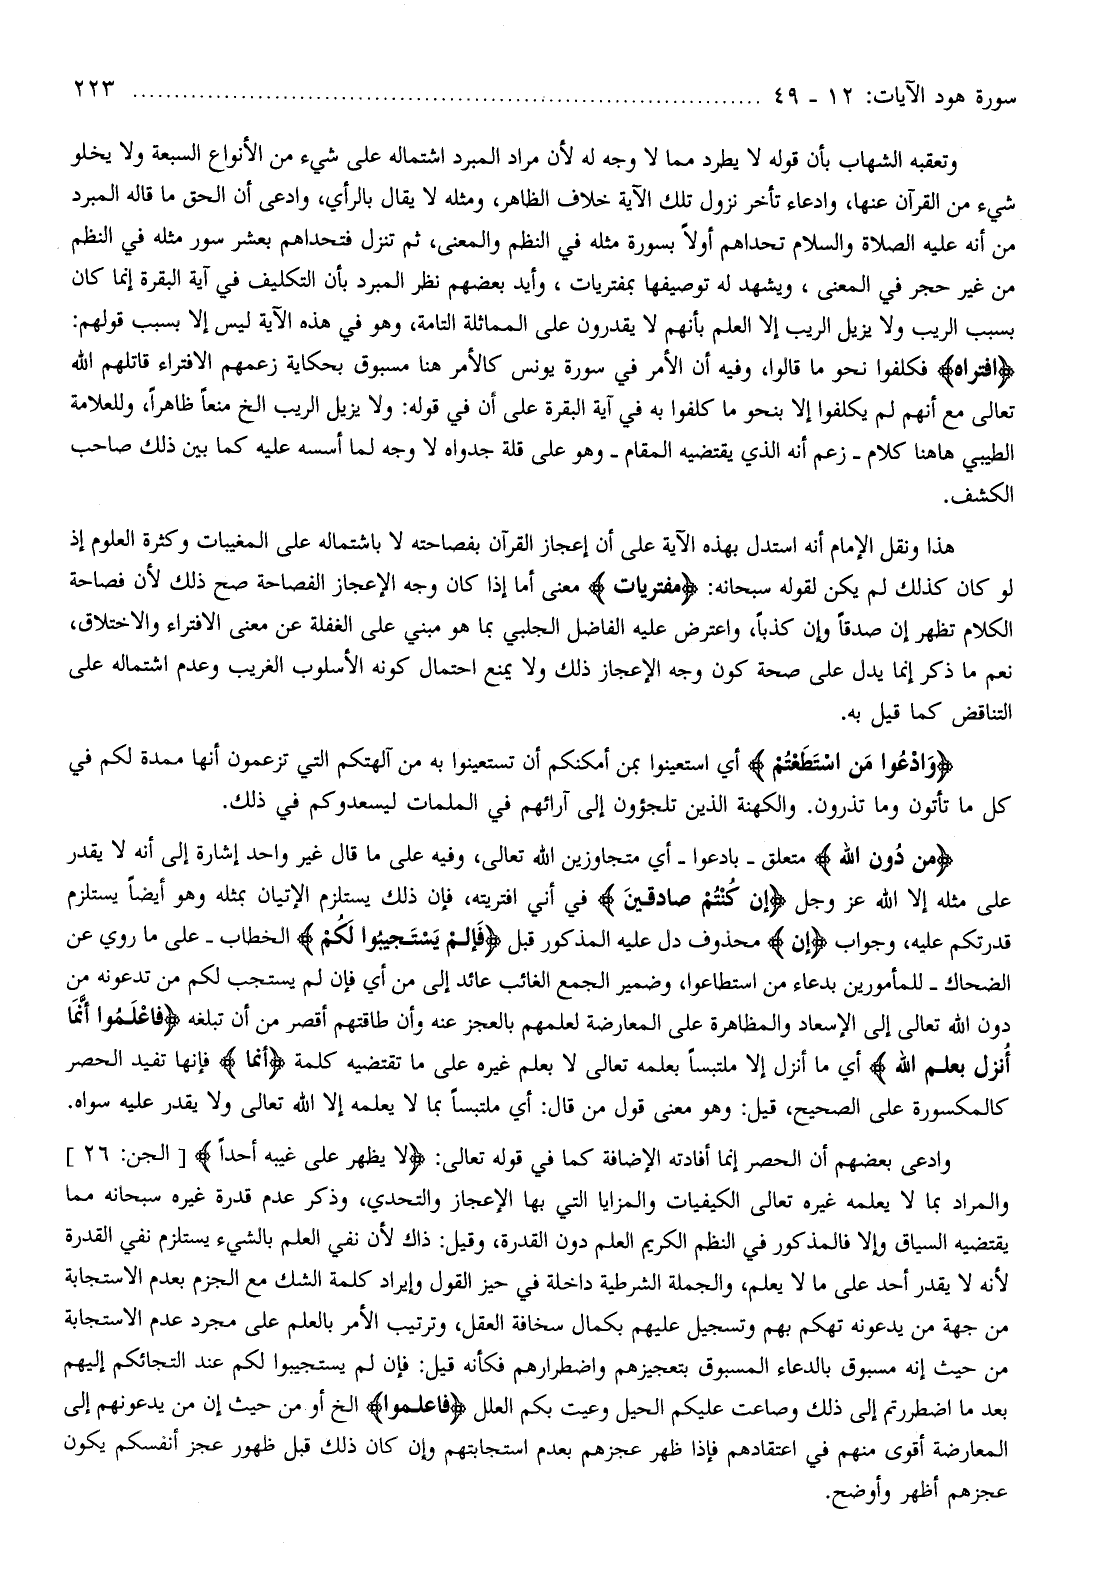 سورة هود الآيات: ١٢ ـ ٤٩ ........................................................................... ٢٢٣
وتعقبه الشهاب بأن قوله لا يطرد مما لا وجه له لأن مراد المبرد اشتماله على شيء من الأنواع السبعة ولا يخلو
شيء من القرآن عنها، وادعاء تأخر نزول تلك الآية خلاف الظاهر، ومثله لا يقال بالرأي، وادعى أن الحق ما قاله المبرد
من أنه عليه الصلاة والسلام تحداهم أولاً بسورة مثله في النظم والمعنى، ثم تنزل فتحداهم بعشر سور مثله في النظم
من غير حجر في المعنى ، ويشهد له توصيفها بمفتريات ، وأيد بعضهم نظر المبرد بأن التكليف في آية البقرة إنما كان
بسبب الريب ولا يزيل الريب إلا العلم بأنهم لا يقدرون على المماثلة التامة، وهو في هذه الآية ليس إلا بسبب قولهم:
﴿افتراه﴾ فكلفوا نحو ما قالوا، وفيه أن الأمر في سورة يونس كالأمر هنا مسبوق بحكاية زعمهم الافتراء قاتلهم الله
تعالى مع أنهم لم يكلفوا إلا بنحو ما كلفوا به في آية البقرة على أن في قوله: ولا يزيل الريب الخ منعاً ظاهراً، وللعلامة
الطيبي هاهنا كلام ـ زعم أنه الذي يقتضيه المقام ـ وهو على قلة جدواه لا وجه لما أسسه عليه كما بين ذلك صاحب
الكشف.
هذا ونقل الإمام أنه استدل بهذه الآية على أن إعجاز القرآن بفصاحته لا باشتماله على المغيبات وكثرة العلوم إذ
لو كان كذلك لم يكن لقوله سبحانه: ﴿مفتريات﴾ معنى أما إذا كان وجه الإعجاز الفصاحة صح ذلك لأن فصاحة
الكلام تظهر إن صدقاً وإن كذباً، واعترض عليه الفاضل الجلبي بما هو مبني على الغفلة عن معنى الافتراء والاختلاق،
نعم ما ذكر إنما يدل على صحة كون وجه الإعجاز ذلك ولا يمنع احتمال كونه الأسلوب الغريب وعدم اشتماله على
التناقض كما قيل به.
﴿وَادْعُوا مَن اسْتَطَعْتُمْ﴾ أي استعينوا بمن أمكنكم أن تستعينوا به من آلهتكم التي تزعمون أنها ممدة لكم في
كل ما تأتون وما تذرون. والكهنة الذين تلجؤون إلى آرائهم في الملمات ليسعدوكم في ذلك.
﴿من دُون الله﴾ متعلق ـ بادعوا ـ أي متجاوزين الله تعالى، وفيه على ما قال غير واحد إشارة إلى أنه لا يقدر
على مثله إلا الله عز وجل ﴿إن كُنْتُمْ صادقينَ﴾ في أني افتريته، فإن ذلك يستلزم الإتيان بمثله وهو أيضاً يستلزم
قدرتكم عليه، وجواب ﴿إن﴾ محذوف دل عليه المذكور قبل ﴿فَإلمْ يَسْتَجيبُوا لَكُمْ﴾ الخطاب ـ على ما روي عن
الضحاك ـ للمأمورين بدعاء من استطاعوا، وضمير الجمع الغائب عائد إلى من أي فإن لم يستجب لكم من تدعونه من
دون الله تعالى إلى الإسعاد والمظاهرة على المعارضة لعلمهم بالعجز عنه وأن طاقتهم أقصر من أن تبلغه ﴿فاعْلَمُوا أنَّمَا
أُنزل بعلم الله﴾ أي ما أنزل إلا ملتبساً بعلمه تعالى لا بعلم غيره على ما تقتضيه كلمة ﴿أنما﴾ فإنها تفيد الحصر
كالمكسورة على الصحيح، قيل: وهو معنى قول من قال: أي ملتبساً بما لا يعلمه إلا الله تعالى ولا يقدر عليه سواه.
وادعى بعضهم أن الحصر إنما أفادته الإضافة كما في قوله تعالى: ﴿لا يظهر على غيبه أحداً﴾ [ الجن: ٢٦ ]
والمراد بما لا يعلمه غيره تعالى الكيفيات والمزايا التي بها الإعجاز والتحدي، وذكر عدم قدرة غيره سبحانه مما
يقتضيه السياق وإلا فالمذكور في النظم الكريم العلم دون القدرة، وقيل: ذاك لأن نفي العلم بالشيء يستلزم نفي القدرة
لأنه لا يقدر أحد على ما لا يعلم، والجملة الشرطية داخلة في حيز القول وإيراد كلمة الشك مع الجزم بعدم الاستجابة
من جهة من يدعونه تهكم بهم وتسجيل عليهم بكمال سخافة العقل، وترتيب الأمر بالعلم على مجرد عدم الاستجابة
من حيث إنه مسبوق بالدعاء المسبوق بتعجيزهم واضطرارهم فكأنه قيل: فإن لم يستجيبوا لكم عند التجائكم إليهم
بعد ما اضطررتم إلى ذلك وضاعت عليكم الحيل وعيت بكم العلل ﴿فاعلموا﴾ الخ أو من حيث إن من يدعونهم إلى
المعارضة أقوى منهم في اعتقادهم فإذا ظهر عجزهم بعدم استجابتهم وإن كان ذلك قبل ظهور عجز أنفسكم يكون
عجزهم أظهر وأوضح.